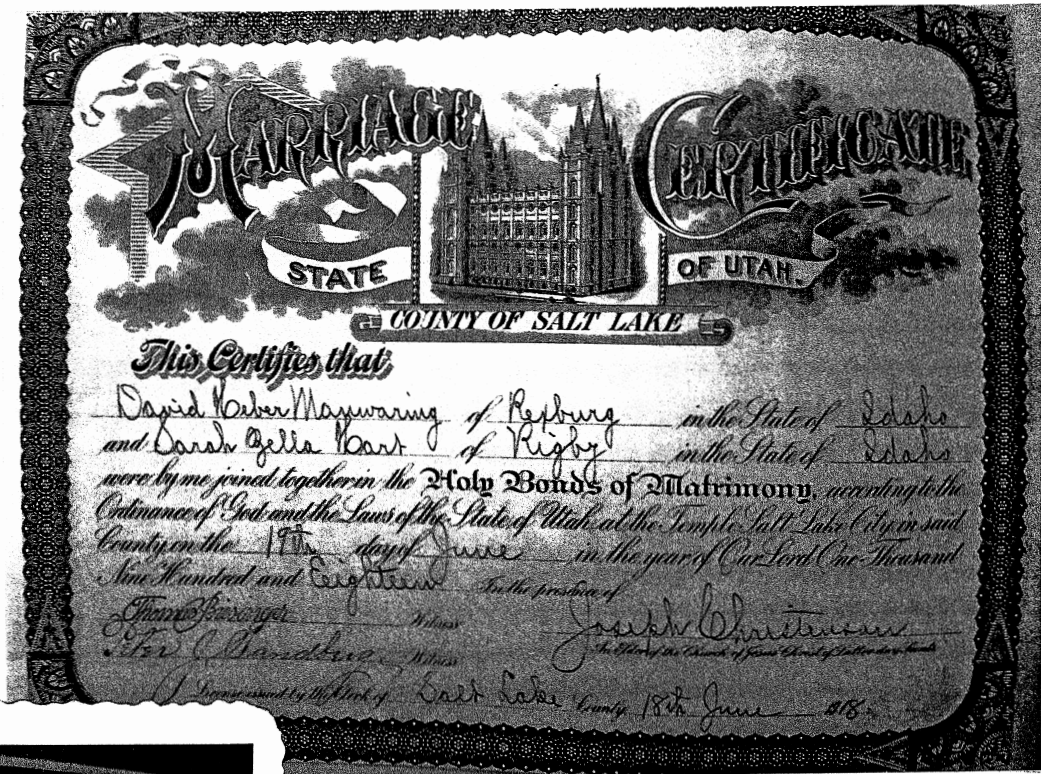 MARRIAGE CERTIFICATE
STATE OF UTAH.
COUNTY OF SALT LAKE
This Certifies that
David Heber Manwaring of Rexburg in the State of Idaho
and Sarah Zella Hart of Rigby in the State of Idaho
were by me joined together in the Holy Bonds of Matrimony, according to the
Ordinance of God and the Laws of the State of Utah at the Temple, Salt Lake City in said
County, on the 19th day of June in the year of Our Lord One Thousand
Nine Hundred and Eighteen In the presence of
Thomas Witness Joseph Christenson
Peter J Sandberg Witness An Elder of the Church of Jesus Christ of Latter-day Saints
License issued by the Clerk of Salt Lake County 18th June 1918.